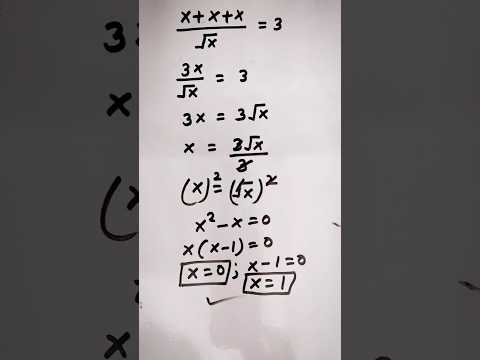 x+x+x/√x = 3
3x/√x = 3
3x = 3√x
x = 3√x/3
(x)² = (√x)²
x² - x = 0
x(x-1) = 0
x = 0 ; x - 1 = 0
x = 1